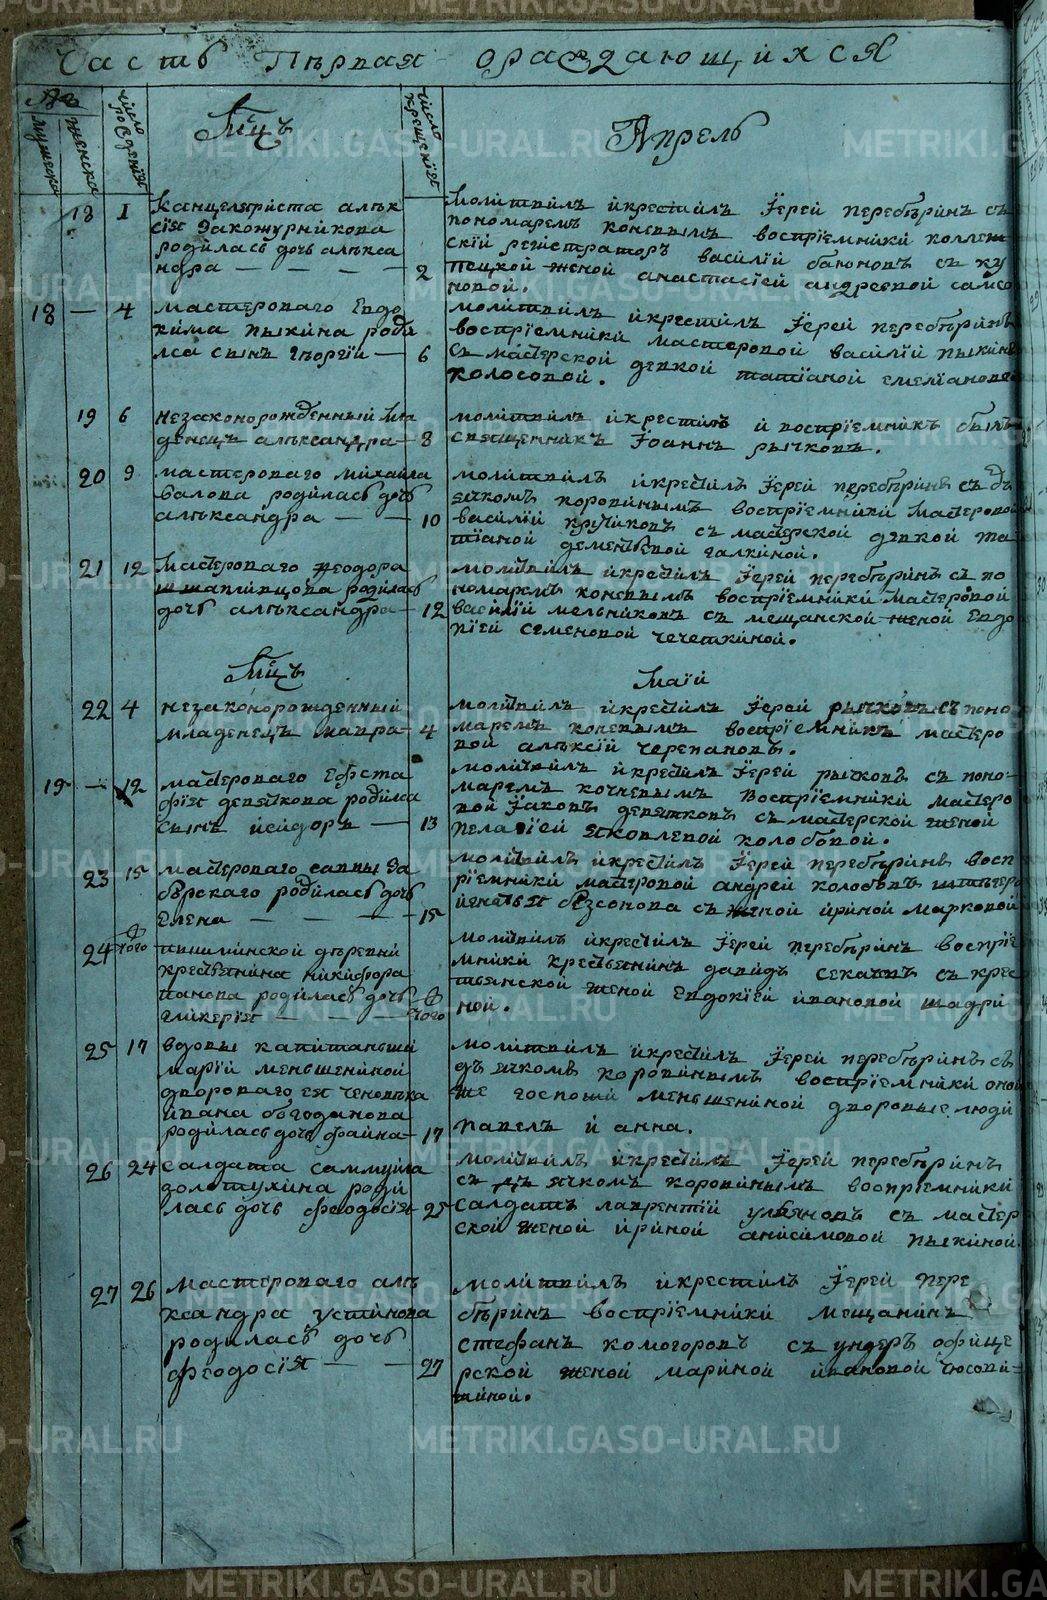 Часть Первая ораждающихся
№
мужеска
женска
число рожденія
Мцъ
число крещенія
Апрель
18 1 Канцеляриста алѣк
сія Закожурникова
родилась дочь алѣкса
ндра — — — — 2
Молитвилъ икрестилъ Іерей перебѣринъ съ
пономаремъ коневымъ воспріемники коллеж
скій регистраторъ василій баюновъ съ ку
пецкой женой анастасіей андреевой самсо
новой.
18 — 4 мастероваго Евдо
кима пыхина роди
лса сынъ Георгіи — 6
молитвилъ икрестилъ Іерей перебѣринъ
воспріемники мастеровой василій пыхинъ
съ мастерской девкой татіаной емеліановой
колосовой.
19 6 незаконорожденный мла
денецъ алѣксандра — 8
молитвилъ икрестилъ и воспріемникъ былъ
священникъ Іоаннъ рычковъ.
20 9 мастероваго михаила
валова родилась дочь
алѣксандра — — 10
молитвилъ икрестилъ Іерей перебѣринъ съ дь
ячкомъ коровинымъ воспріемники мастеровой
василій крутиковъ съ мастерской девкой та
тіаной дементьевой галкиной.
21 12 Мастероваго Феодора
родилась
дочь алѣксандра — 12
молитвилъ икрестилъ Іерей перебѣринъ съ по
номаремъ коневымъ воспріемники мастеровой
василій мельниковъ съ мещанской женой Евдо
кіей семеновой чечеткиной.
Мцъ Маій
22 4 незаконорожденный
младенецъ мавра — 4
молитвилъ икрестилъ Іерей рычковъ съ поно
маремъ коневымъ воспріемникъ мастеро
вой алѣксій черепановъ.
19 — 12 мастероваго Евста
фія девяткова родилса
сынъ исидоръ — 13
молитвилъ икрестилъ Іерей рычковъ съ поно-
маремъ кочневымъ воспріемники мастеро
вой Іаковъ девятковъ съ мастерской женой
пелагіей яковлевой колобовой.
23 15 мастероваго саввы За
бѣрскаго родилась дочь
Елена — — — 15
молитвилъ икрестилъ Іерей перебѣринъ восп
ріемники мастеровой андрей колобовъ
игнатья безсонова съ женой ириной марковой
24 того пышминской деревни
крестьянина никифора
панова родилась дочь
гликерія — — — того
молитвилъ икрестилъ Іерей перебѣринъ воспріе
мники крестьянинъ давидъ секачевъ съ крес
тьянской женой Евдокіей ивановой шадри
ной.
25 17 вдовы капитанши
маріи меньшениной
двороваго ея человека
ивана обгоданова
родилась дочь фаина — 17
молитвилъ икрестилъ Іерей перебѣринъ съ
дьячкомъ коровинымъ воспріемники оной
же госпожи меньшениной дворовые люди
павелъ и анна.
26 24 салдата самуила
золотухина роди
лась дочь феодосія 25
молитвилъ икрестилъ Іерей перебѣринъ
съ дь ячкомъ коровинымъ воспріемники
салдатъ лаврентій ульяновъ съ мастер
ской женой ириной анисимовой пыхиной.
27 26 мастероваго алѣ
ксандра устинова
родилась дочь
феодосія — — 27
молитвилъ икрестилъ Іерей пере
бѣринъ воспріемники мещанинъ
стефанъ комогоровъ съ ундеръ офице
рской женой мариной ивановой чюсови-
тиной.
METRIKI.GASO-URAL.RU